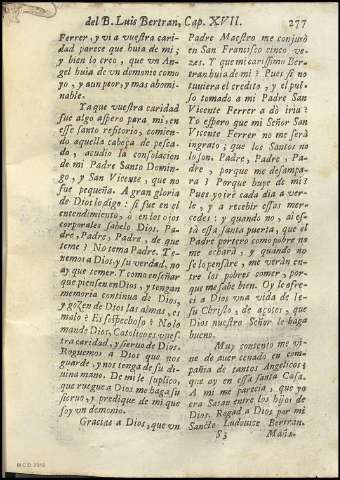 del B. Luis Bertran, Cap. XVII. 277
Ferrer, y vi a vuestra cari-
dad parece que huia de mi;
y bien lo creo, que vn An-
gel huia de vn demonio como
yo, y aun peor, y mas abomi-
nable.
Ya que vuestra caridad
fue algo aspero para mi, en
esse santo refitorio, comien-
do aquella cabeça de pesca-
do, acudio la consolacion
de mi Padre Santo Domin-
go, y San Vicente, que no
fue pequeña. A gran gloria
de Dios lo digo: si fue en el
entendimiento, ò en los ojos
corporales sabelo Dios. Pa-
dre, Padre, Padre, de que
teme? No tema Padre. Te-
nemos a Dios y su verdad, no
ay que temer. Y como enseñar
que piensen en Dios, y tengan
memoria continua de Dios,
y gozen de Dios las almas, es
malo? Es sospechoso? No lo
mande Dios, Catolico es vues-
tra caridad, y siervo de Dios.
Roguemos a Dios que nos
guarde, y nos tenga de su di-
uina mano. De mi le suplico,
que ruegue a Dios me haga su
sieruo, y predique de mi que
soy vn demonio.
Gracias a Dios, que vn
Padre Maestro me conjurò
en San Francisco cinco ve-
zes. Y que mi carissimo Ber-
tran huia de mi? Pues si no
tuviera el credito, y el pul-
so tomado a mi Padre San
Vicente Ferrer a dò iria?
Yo espero que mi Señor San
Vicente Ferrer no me serà
ingrato; que los Santos no
lo son. Padre, Padre, Pa-
dre, porque me desampa-
ra? Porque huye de mi?
Pues yo irè cada dia a ver-
le, y a recebir essas mer-
cedes: y quando no, ai es-
tà essa santa puerta, que el
Padre portero como pobre no
me echarà, y quando no
se lo pensàre, me veràn en-
tre los pobres comer, por-
que me sabe bien. Oy le ofre-
ci a Dios vna vida de Je-
su Christo, de açotes, que
Dios nuestro Señor le haga
bueno.
Muy contento me vi-
ne de auer cenado en com-
pañia de santos Angelicos;
que oy en essa santa Casa.
A mi me parecia, que yo
era Satan entre los hijos de
Dios. Rogad a Dios por mi
Sancte Ludouice Bertran.
S3 Maña-
M.C.D. 2010